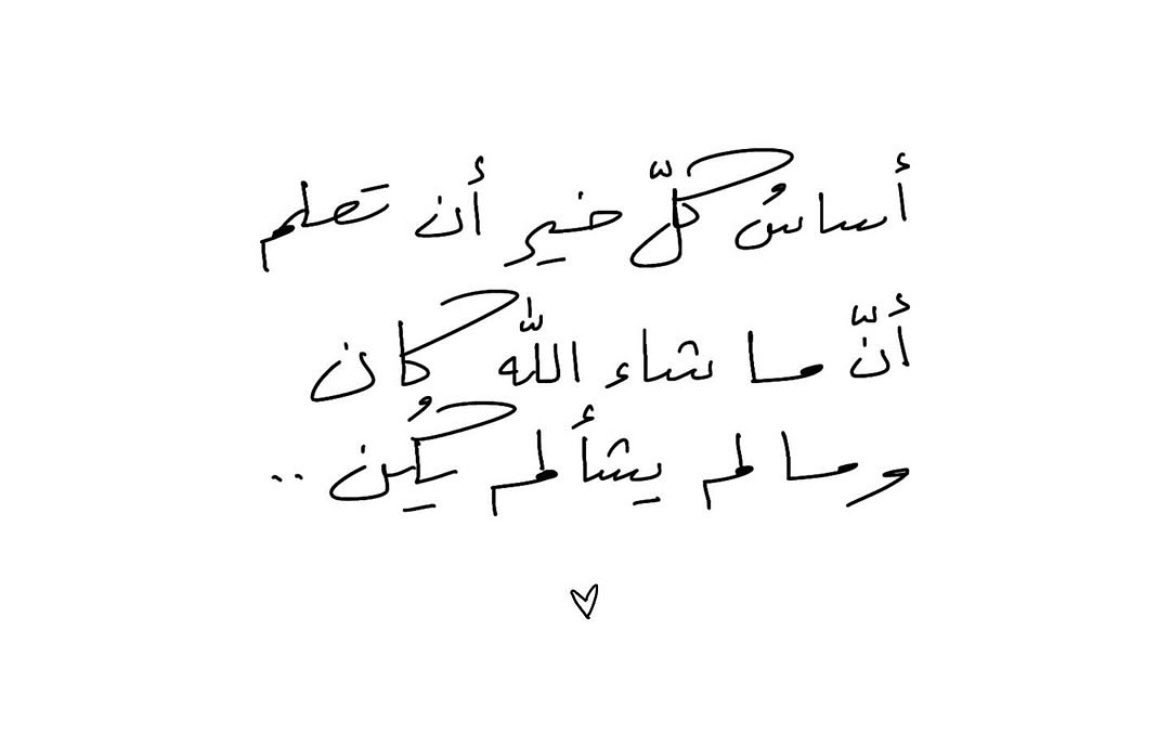 أساسُ كلّ خير أن تعلم
أنّ ما شاء اللّٰه كان
وما لم يشأ لم يكُن ..
♡